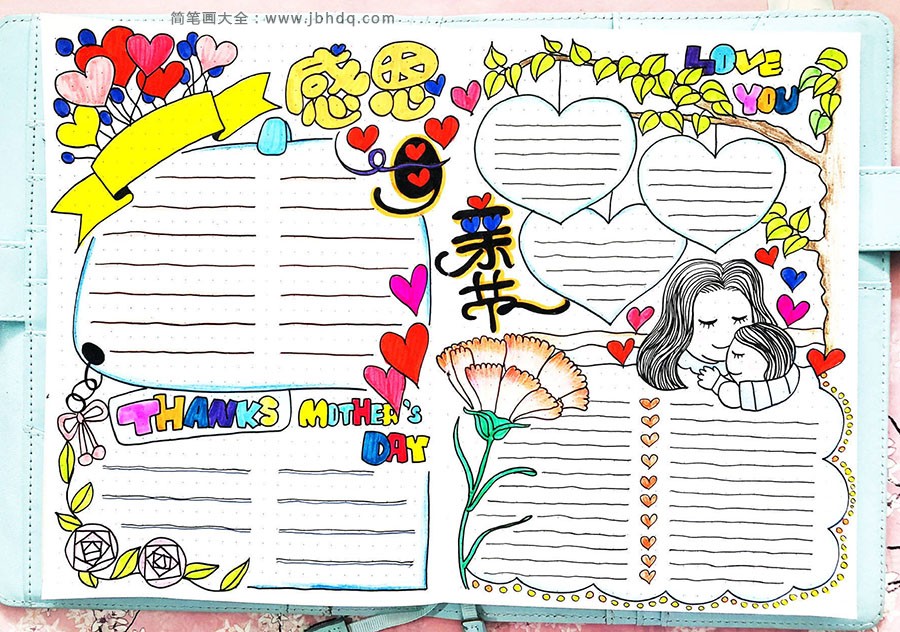 简笔画大全：www.jbhdq.com
感恩
母
亲
节
LOVE
YOU
THANKS MOTHER'S
DAY